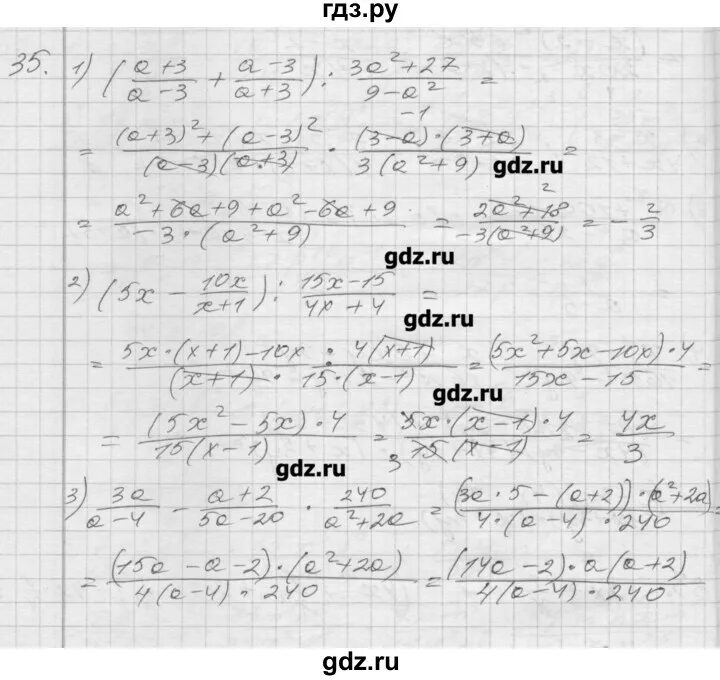 гдз.ру
35. 1) ((a+3)/(a-3) + (a-3)/(a+3)) : (3a²+27)/(9-a²) =
= ((a+3)²+(a-3)²)/((a-3)(a+3)) · (-1 (3-a)·(3+a))/(3(a²+9)) =
gdz.ru
= (a²+6a+9+a²-6a+9)/(-3·(a²+9)) = (2a²+18)/(-3(a²+9)) 2 = -2/3
gdz.ru
2) (5x - 10x/(x+1)) : (15x-15)/(4x+4) =
gdz.ru
= (5x·(x+1)-10x)/((x+1)·) : (4(x+1))/(15·(x-1)) = ((5x²+5x-10x)·4)/(15x-15) =
= ((5x²-5x)·4)/(15(x-1)) = (5x·(x-1)·4)/(3 15(x-1)) = 4x/3
gdz.ru
3) 3a/(a-4) - (a+2)/(5a-20) · 240/(a²+2a) = ((3a·5-(a+2))·(a²+2a))/(4·(a-4)·240) =
= ((15a-a-2)·(a²+2a))/(4(a-4)·240) = ((14a-2)·a(a+2))/(4(a-4)·240)
gdz.ru